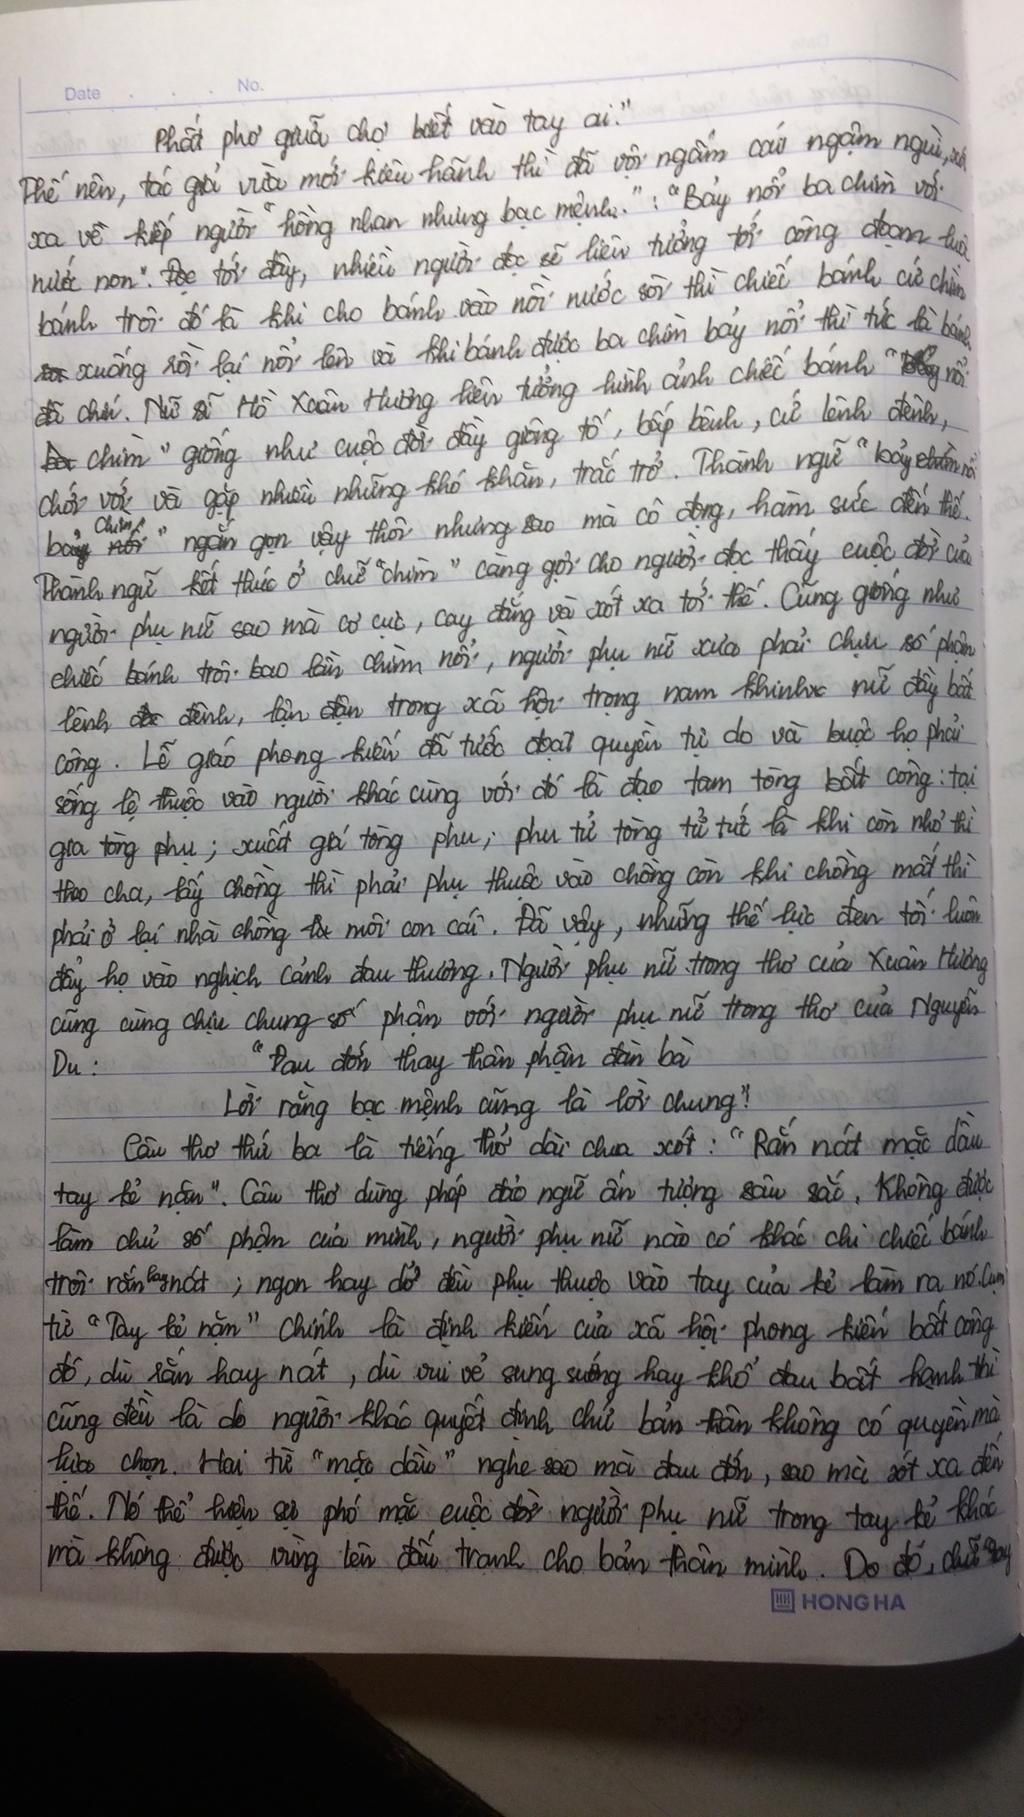 Date . . . No.
Phất phơ giữa chợ biết vào tay ai."
Thế nên, tác giả vừa mới kiêu hãnh thì đã vội ngấm cái ngậm ngùi, xót
xa về kiếp người "hồng nhan nhưng bạc mệnh." : "Bảy nổi ba chìm với
nước non". Đọc tới đây, nhiều người đọc sẽ liên tưởng tới công đoạn luộc
bánh trôi đó là khi cho bánh vào nồi nước sôi thì chiếc bánh cứ chìm
xuống rồi lại nổi lên và khi bánh được ba chìm bảy nổi thì tức là bánh
đã chín. Nữ sĩ Hồ Xuân Hương liên tưởng hình ảnh chiếc bánh " nổi
chìm" giống như cuộc đời đầy giông tố, bấp bênh, cứ lênh đênh,
chới với và gặp nhiều những khó khăn, trắc trở. Thành ngữ "bảy nổi
ba chìm" ngắn gọn vậy thôi nhưng sao mà cô đọng, hàm súc đến thế.
Thành ngữ kết thúc ở chữ "chìm" càng gợi cho người đọc thấy cuộc đời của
người phụ nữ sao mà cơ cực, cay đắng và xót xa tới thế. Cũng giống như
chiếc bánh trôi bao lần chìm nổi, người phụ nữ xưa phải chịu số phận
lênh đênh, lận đận trong xã hội trọng nam khinh nữ đầy bất
công. Lễ giáo phong kiến đã tước đoạt quyền tự do và buộc họ phải
sống lệ thuộc vào người khác cùng với đó là đạo tam tòng bất công: tại
gia tòng phụ; xuất giá tòng phu; phu tử tòng tử tức là khi còn nhỏ thì
theo cha, lấy chồng thì phải phụ thuộc vào chồng còn khi chồng mất thì
phải ở lại nhà chồng nuôi con cái. Đã vậy, những thế lực đen tối luôn
đẩy họ vào nghịch cảnh đau thương. Người phụ nữ trong thơ của Xuân Hương
cũng cùng chịu chung số phận với người phụ nữ trong thơ của Nguyễn
Du: "Đau đớn thay thân phận đàn bà
Lời rằng bạc mệnh cũng là lời chung"!
Câu thơ thứ ba là tiếng thở dài chua xót: "Rắn nát mặc dầu
tay kẻ nặn". Câu thơ dùng phép đảo ngữ ấn tượng sâu sắc. Không được
làm chủ số phận của mình, người phụ nữ nào có khác chi chiếc bánh
trôi rắn hay nát; ngon hay dở đều phụ thuộc vào tay của kẻ làm ra nó. Cụm
từ "Tay kẻ nặn" chính là định kiến của xã hội phong kiến bất công
đó, dù rắn hay nát, dù vui vẻ sung sướng hay khổ đau bất hạnh thì
cũng đều là do người khác quyết định chứ bản thân không có quyền mà
lựa chọn. Hai từ "mặc dầu" nghe sao mà đau đớn, sao mà xót xa đến
thế. Nó thể hiện sự phó mặc cuộc đời người phụ nữ trong tay kẻ khác
mà không được vùng lên đấu tranh cho bản thân mình. Do đó, chữ
HONG HA